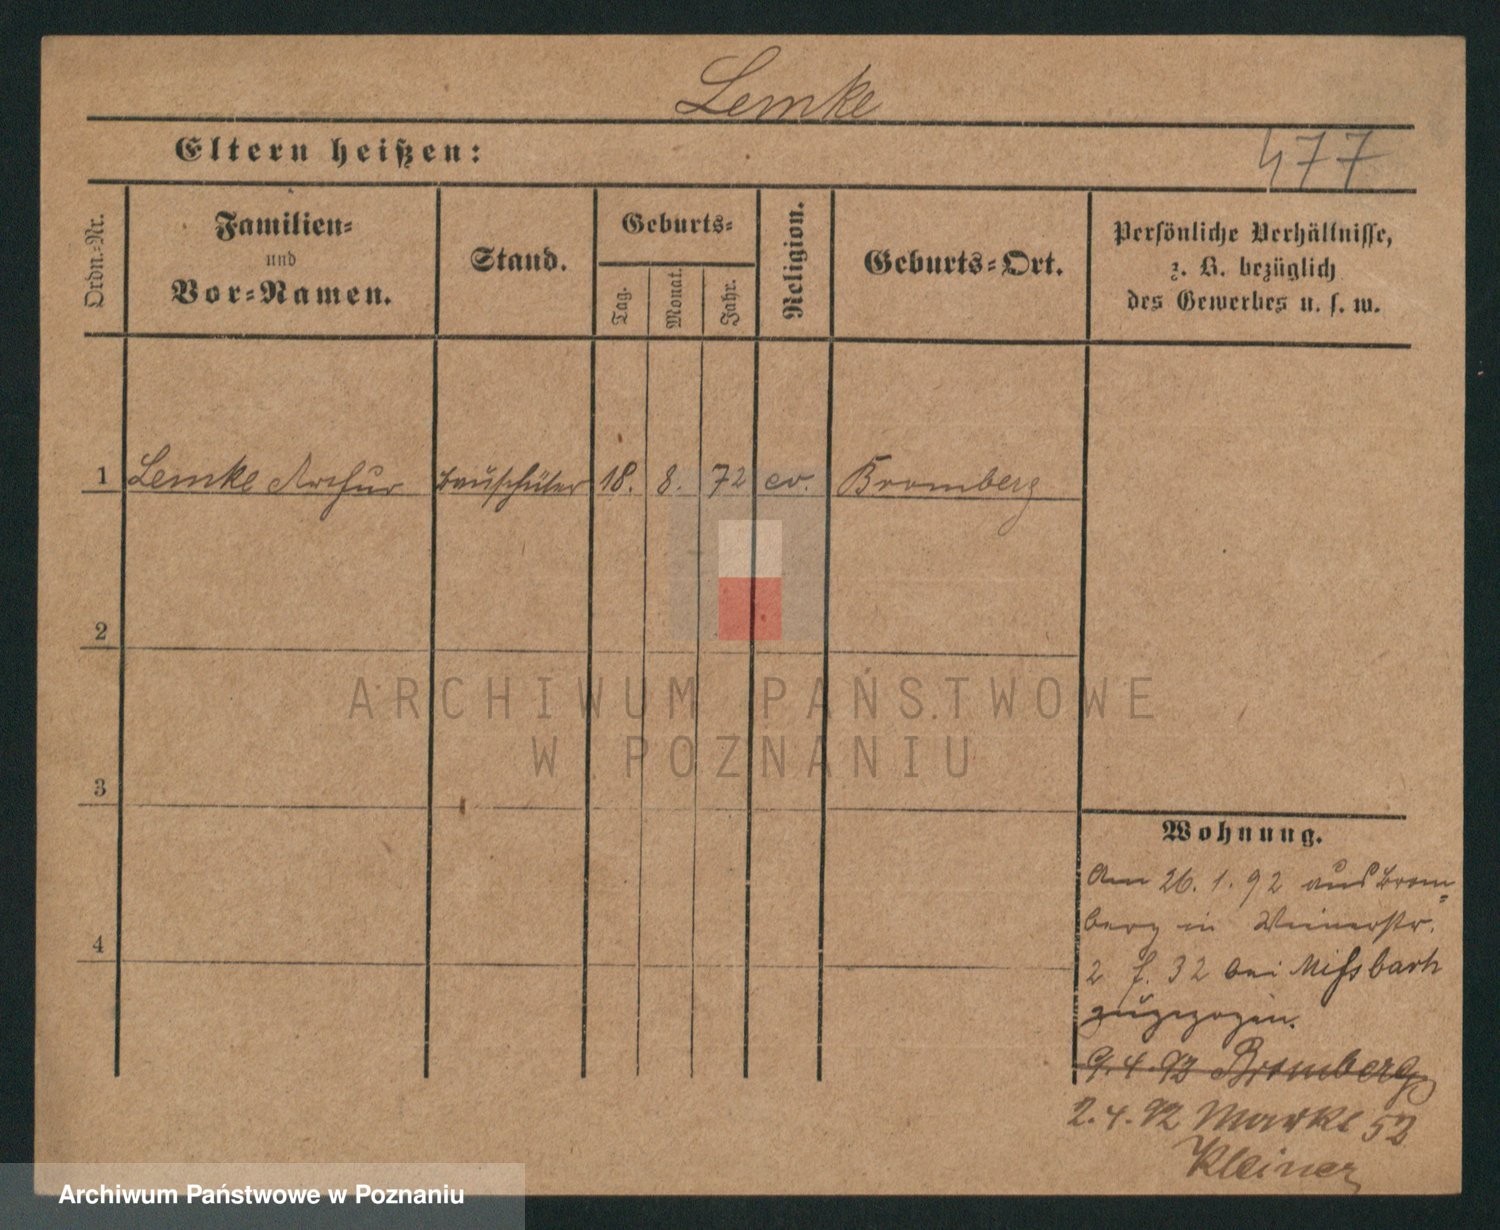 Lemke
Eltern heißen:
477
Ordn.-Nr.
Familien-
und
Vor-Namen.
Stand.
Geburts-
Tag.
Monat.
Jahr.
Religion.
Geburts-Ort.
Persönliche Verhältnisse,
z. B. bezüglich
des Gewerbes u. s. w.
1 Lemke Arthur Bauschüler 18. 8. 72 ev. Bromberg
2
3
4
ARCHIWUM PAŃSTWOWE
W POZNANIU
Wohnung.
Am 26. 1. 92 aus Brom-
berg in
2 f. 32 bei
zugezogen.
9. 4. 92 Bromberg
2. 4. 92 52
Kleiner
Archiwum Państwowe w Poznaniu